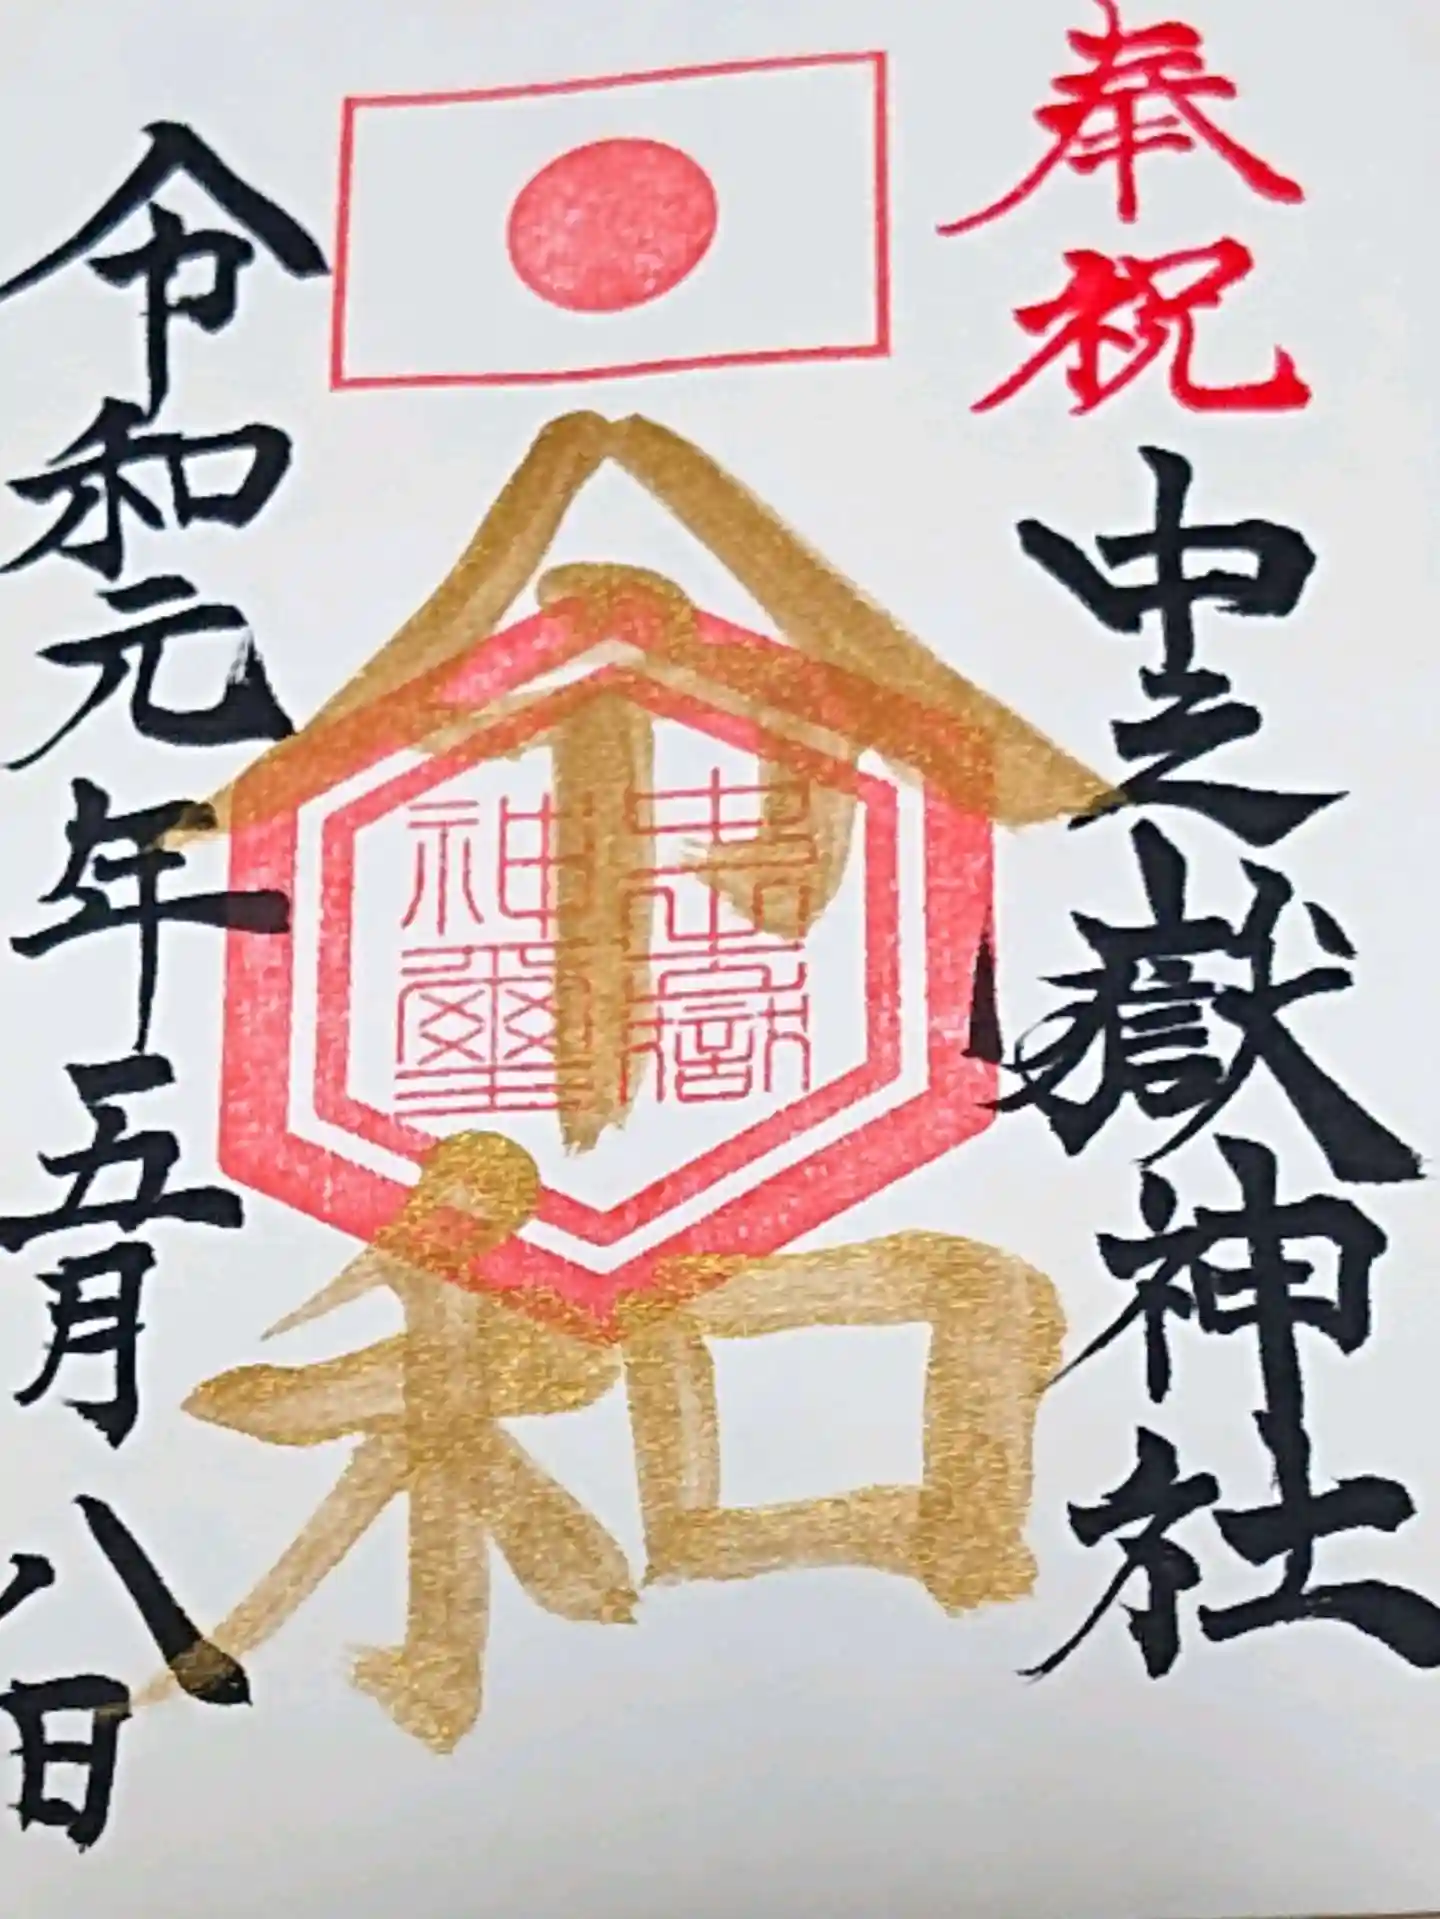 奉祝
中之嶽神社
令和
中之嶽
神璽
令和元年五月八日